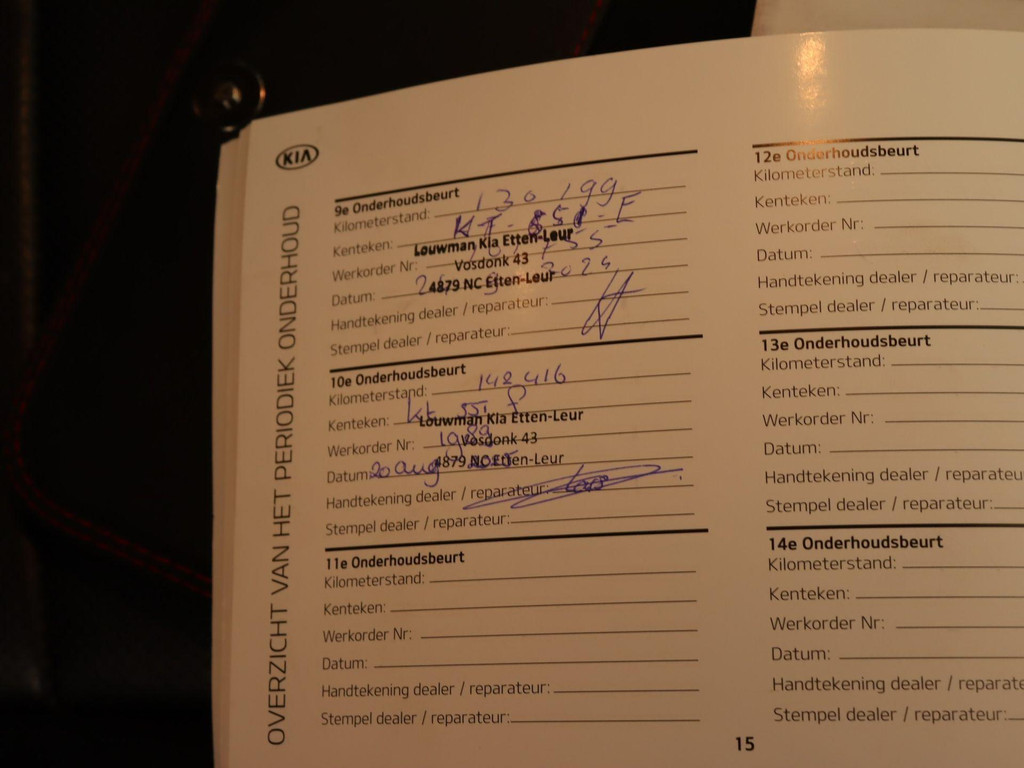 KIA
OVERZICHT VAN HET PERIODIEK ONDERHOUD
9e Onderhoudsbeurt
Kilometerstand: 130 199
Kenteken: KT-
Louwman Kia Etten-Leur
Werkorder Nr:
Vosdonk 43
Datum: 2024
4879 NC Etten-Leur
Handtekening dealer / reparateur:
Stempel dealer / reparateur:
10e Onderhoudsbeurt
Kilometerstand: 148 416
Kenteken: Kt
Louwman Kia Etten-Leur
Werkorder Nr:
Vosdonk 43
Datum: 20 aug
4879 NC Etten-Leur
Handtekening dealer / reparateur:
Stempel dealer / reparateur:
11e Onderhoudsbeurt
Kilometerstand:
Kenteken:
Werkorder Nr:
Datum:
Handtekening dealer / reparateur:
Stempel dealer / reparateur:
12e Onderhoudsbeurt
Kilometerstand:
Kenteken:
Werkorder Nr:
Datum:
Handtekening dealer / reparateur:
Stempel dealer / reparateur:
13e Onderhoudsbeurt
Kilometerstand:
Kenteken:
Werkorder Nr:
Datum:
Handtekening dealer / reparateu
Stempel dealer / reparateur:
14e Onderhoudsbeurt
Kilometerstand:
Kenteken:
Werkorder Nr:
Datum:
Handtekening dealer / reparate
Stempel dealer / reparateur:
15